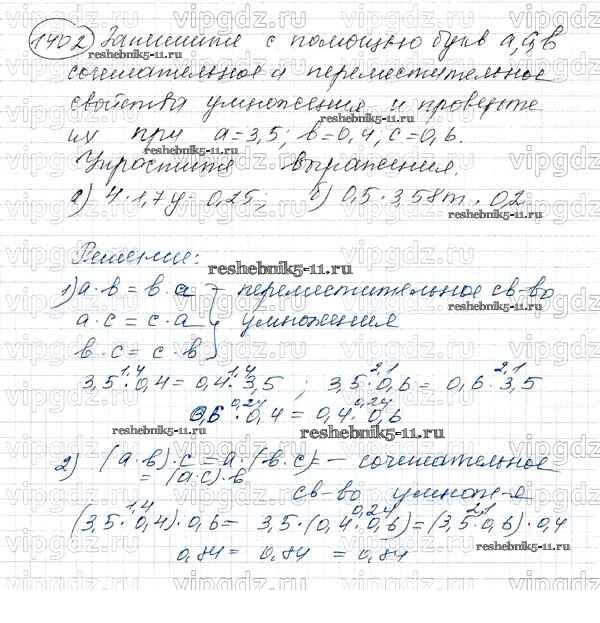 1402 Запишите с помощью букв a, c, в
сочетательное и переместительное
свойства умножения и проверьте
их при a=3,5; в=0,4, c=0,6.
Упростите выражения.
а) 4·1,7y·0,25; б) 0,5·3,58m·0,2
Решение:
1) a·в = в·a - переместительное св-во
a·c = c·a умножения
в·c = c·в
1,4 1,4 2,1 2,1
3,5·0,4=0,4·3,5; 3,5·0,6=0,6·3,5
0,24 0,24
0,6·0,4=0,4·0,6
2) (a·в)·c=a·(в·c)= - сочетательное
=(a·c)·в
св-во умнож-я
1,4 0,24 2,1
(3,5·0,4)·0,6= 3,5·(0,4·0,6)=(3,5·0,6)·0,4
0,84= 0,84 =0,84
reshebnik5-11.ru
vipgdz.ru